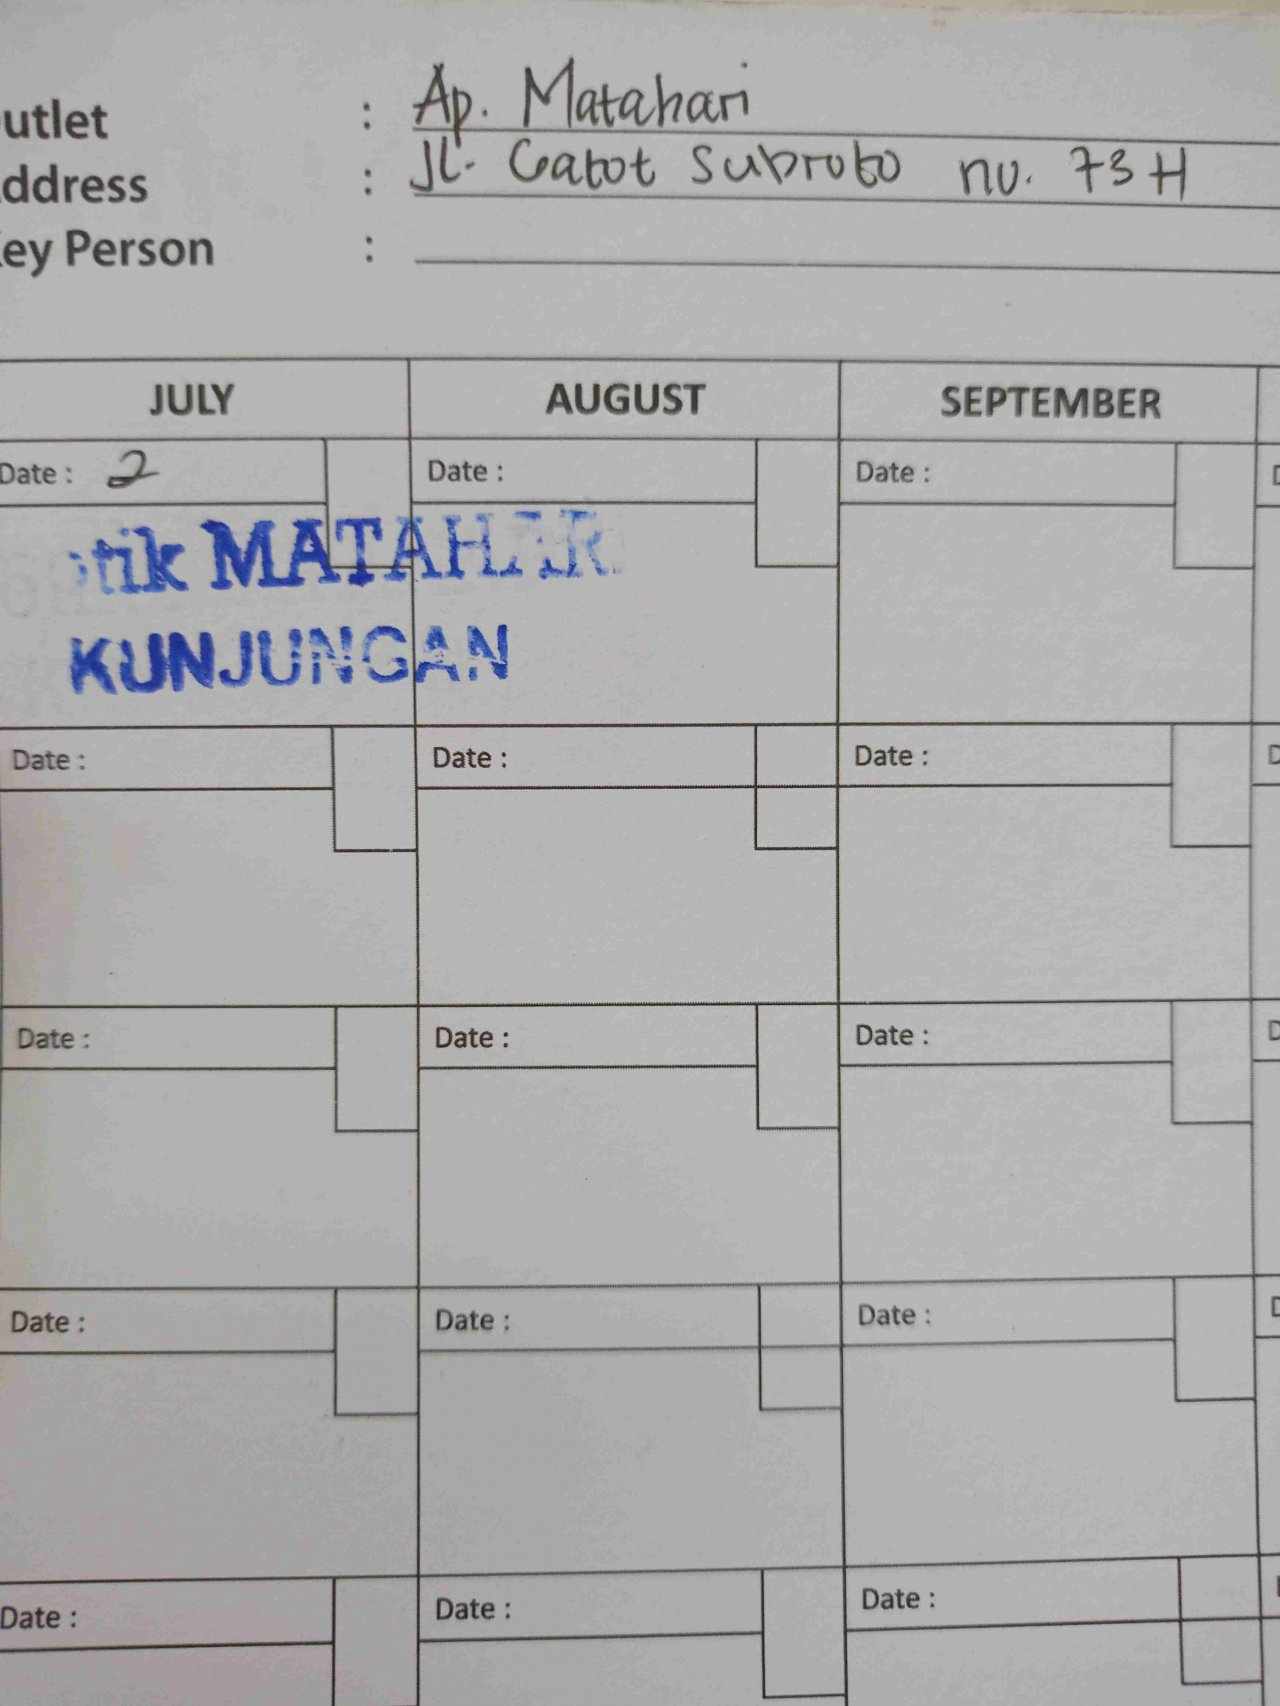 utlet : Ap. Matahari
ddress : Jl. Gatot Subroto no. 73H
ey Person :
JULY AUGUST SEPTEMBER
Date : 2 Date : Date :
tik MATAHARI
KUNJUNGAN
Date : Date : Date :
Date : Date : Date :
Date : Date : Date :
Date : Date : Date :